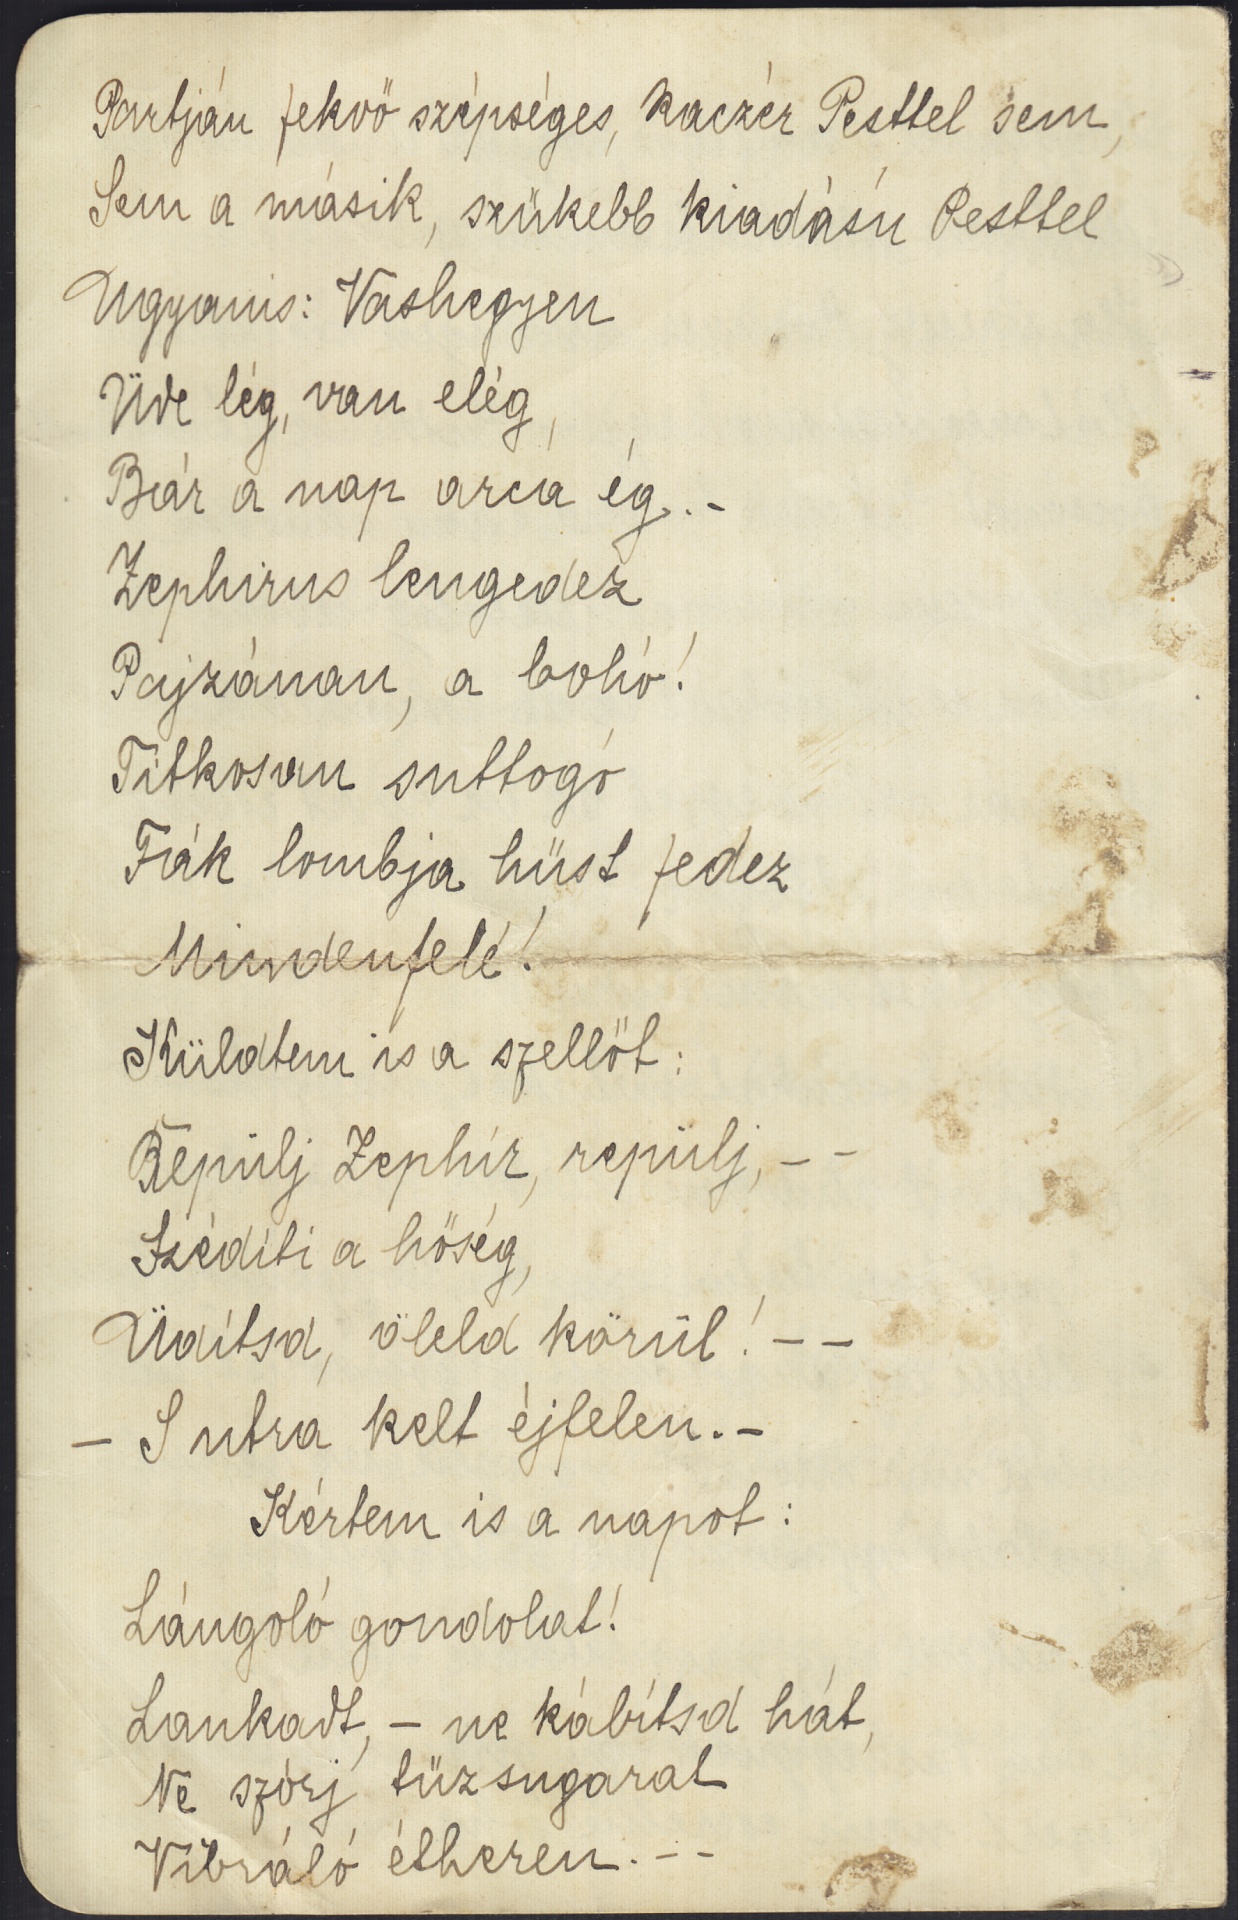 Partján fekvő szépséges, kaczér Pesttel sem,
Sem a másik, szükebb kiadásu Pesttel
Ugyanis: Vashegyen
Üde lég, van elég,
Bár a nap arca ég. -
Zephirus lengedez
Pajzánan, a bohó!
Titkosan suttogó
Fák lombja hüst fedez
Mindenfelé!
Küldtem is a szellőt:
Repülj Zephír, repülj, - -
Szédíti a hőség,
Üdítsd, öleld körül! - -
- S utra kelt éjfelen. -
Kértem is a napot:
Lángoló gondolat!
Lankadt, - ne kábítsd hát,
Ne szórj tüzsugarat
Vibráló étheren. - -